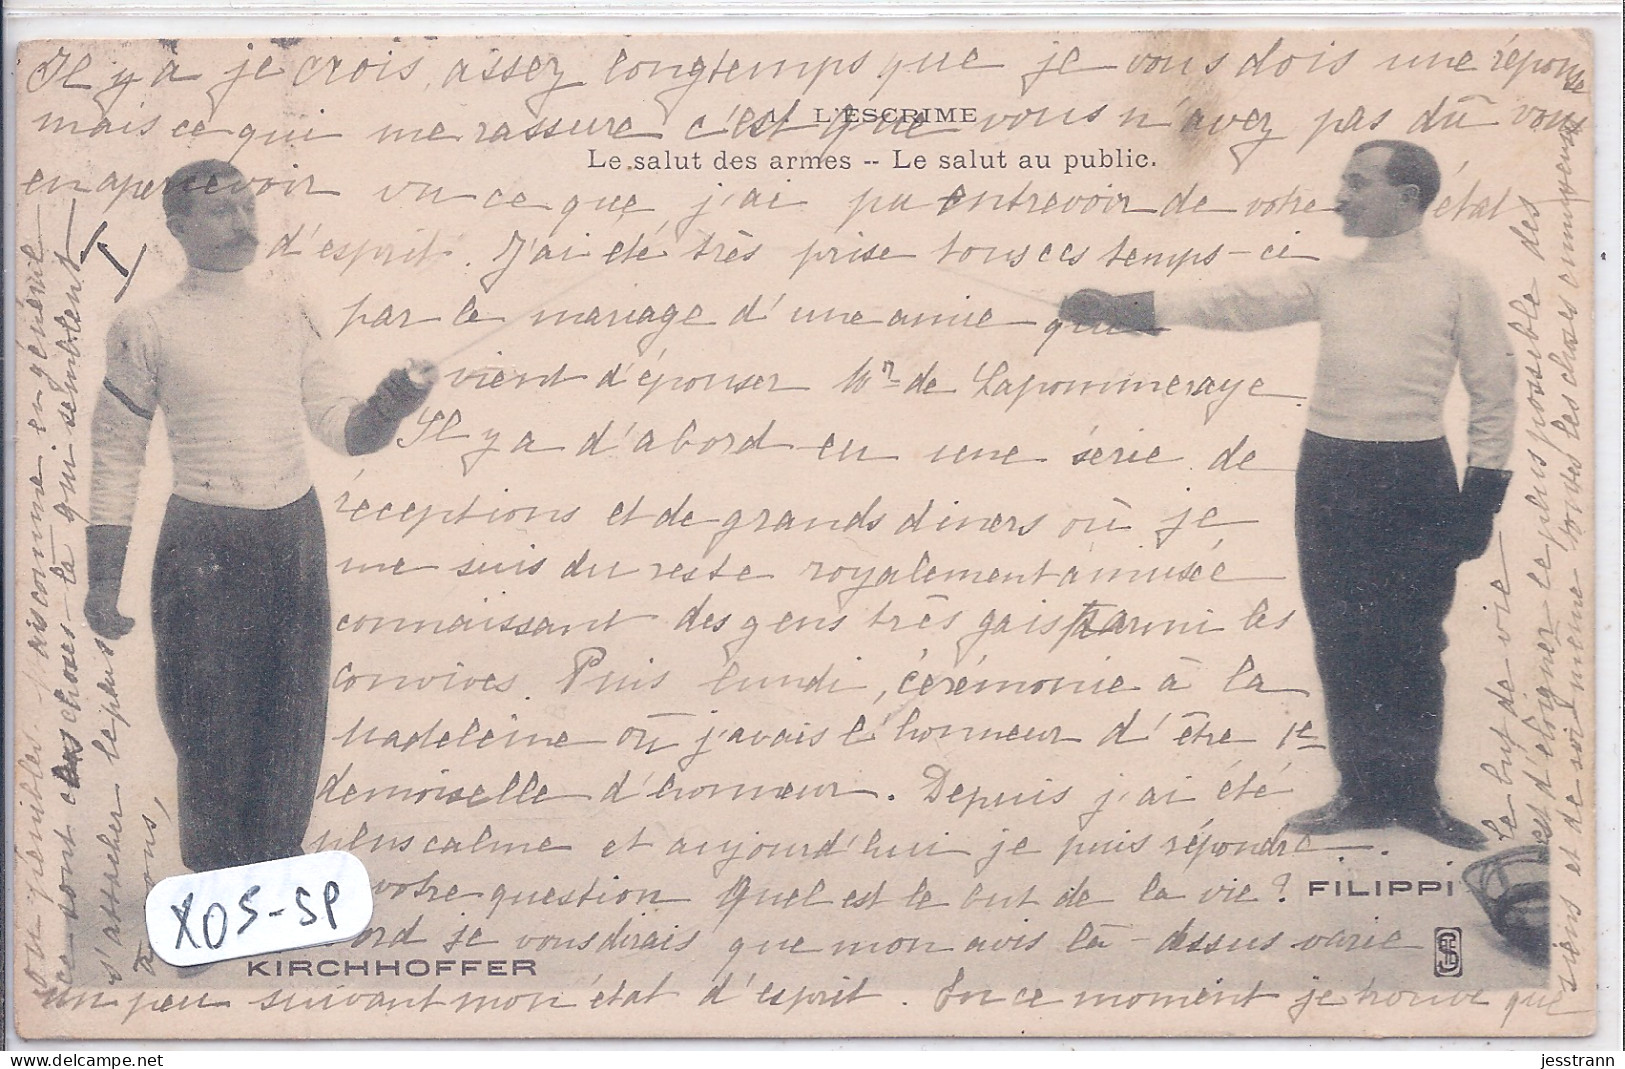 Il y a je crois, assez longtemps que je vous dois une réponse
1. L'ESCRIME
mais ce qui me rassure c'est que vous n'avez pas dû vous
Le salut des armes -- Le salut au public.
en apercevoir vu ce que j'ai pu entrevoir de votre état
d'esprit. J'ai été très prise tous ces temps-ci
par le mariage d'une amie qui
vient d'épouser Mr de Lapommeraye.
Il y a d'abord eu une série de
réceptions et de grands diners où je
me suis du reste royalement amusée
connaissant des gens très gais parmi les
convives. Puis lundi, cérémonie à la
Madeleine où j'avais l'honneur d'être 1e
demoiselle d'honneur. Depuis j'ai été
plus calme et aujourd'hui je puis répondre
votre question Quel est le but de la vie?
FILIPPI
je vous dirais que mon avis là-dessus varie
KIRCHHOFFER
un peu suivant mon état d'esprit. En ce moment je trouve que
le but de vie
est d'éloigner le plus possible des
siens et de soi-même toutes les choses ennuyeuses
ou pénibles. Mais comme en général
ce sont ces choses-là qui semblent
s'attacher le plus
à nous,
X05-SP
jesstrann